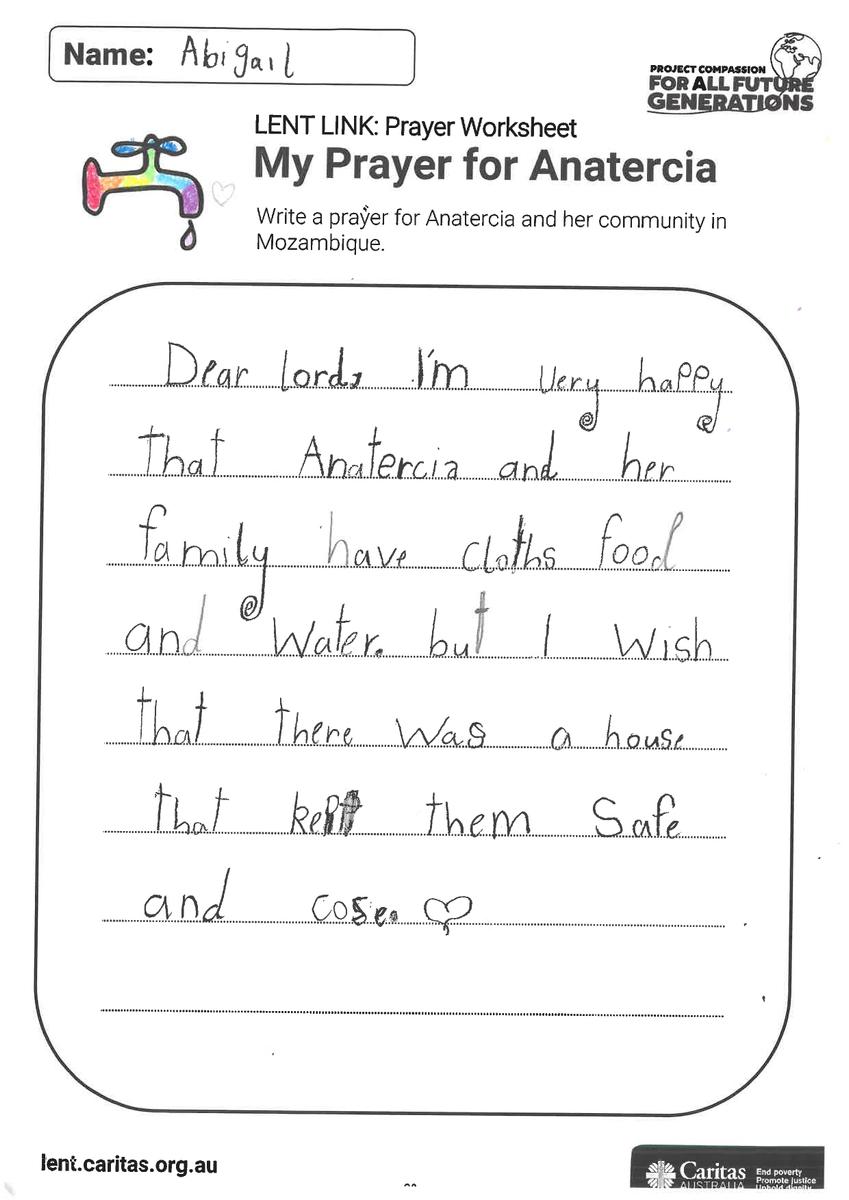 Name: Abigail
PROJECT COMPASSION
FOR ALL FUTURE
GENERATIONS
LENT LINK: Prayer Worksheet
My Prayer for Anatercia
Write a prayer for Anatercia and her community in
Mozambique.
Dear lord, I'm very happy
that Anatercia and her
family have cloths food
and Water. but I Wish
that there was a house
that kept them Safe
and cose. ♡
lent.caritas.org.au
Caritas
AUSTRALIA
End poverty
Promote justice
Uphold dignity